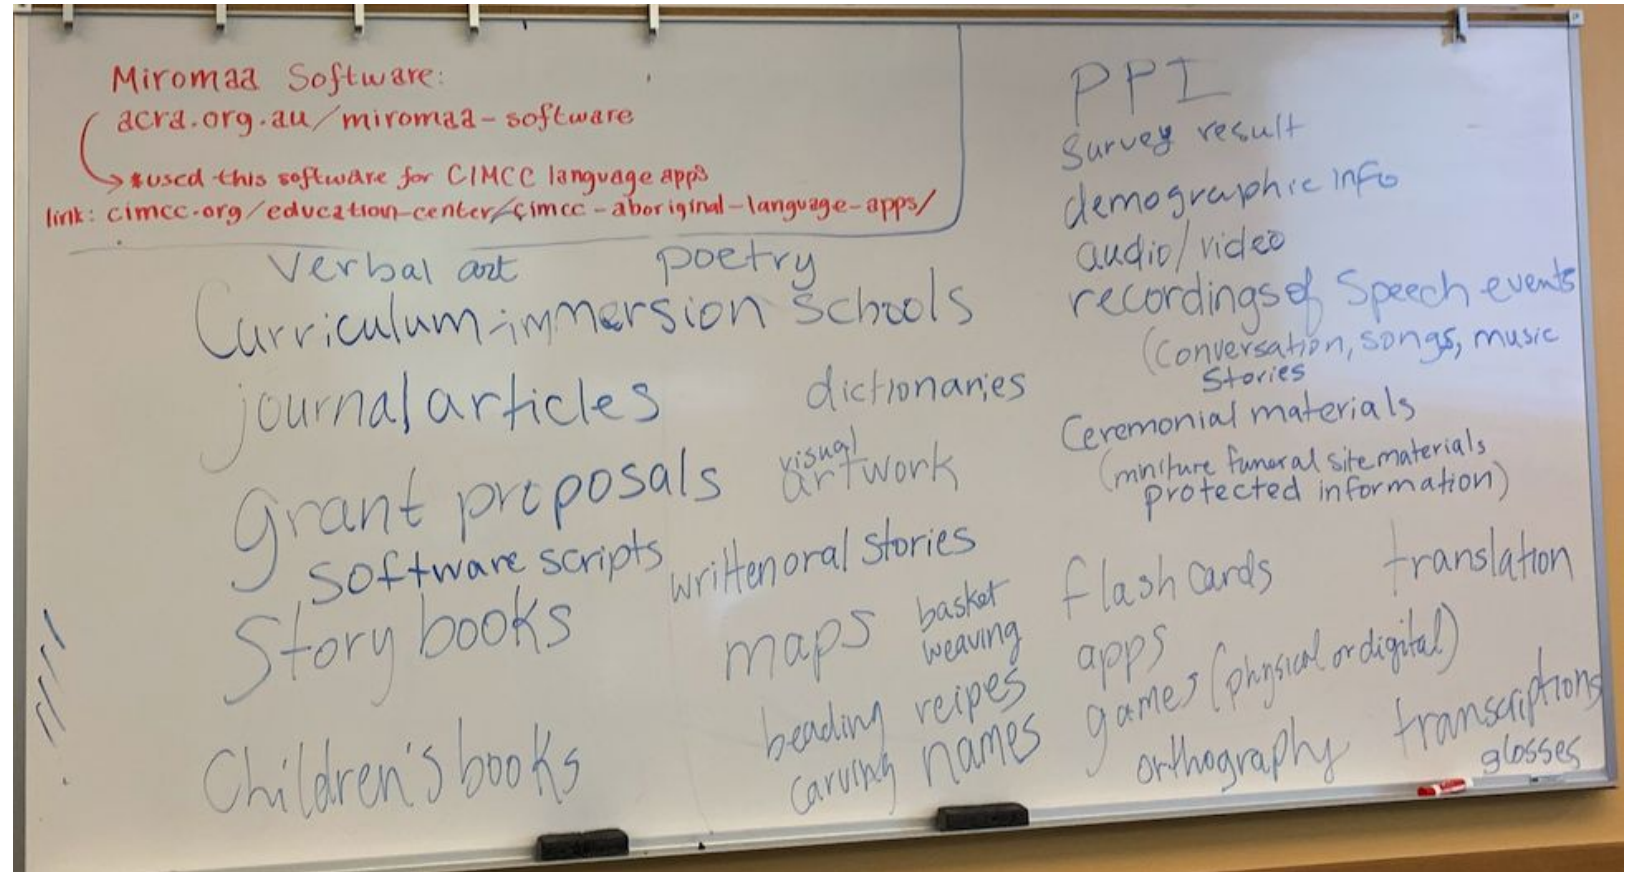 Miromaa Software:
acra.org.au/miromaa-software
*used this software for CIMCC language apps
link: cimcc.org/education-center/cimcc-aboriginal-language-apps/
Verbal art
poetry
Curriculum-immersion Schools
journal articles
dictionaries
grant proposals
visual
artwork
software scripts
written oral stories
Story books
maps
basket
weaving
beading
reipes
Children's books
carving
names
PPI
Survey result
demographic info
audio/video
recordings of Speech events
(Conversation, songs, music
Stories
Ceremonial materials
(miniture funeral site materials
protected information)
flash cards
translation
apps
games (physical or digital)
transcriptions
orthography
glosses